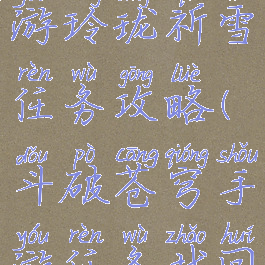 游玲珑祈雪
rèn wù gōng lüè
任务攻略(
dǒu pò cāng qióng shǒu
斗破苍穹手
yóu rèn wù zhǎo huí
游任务找回